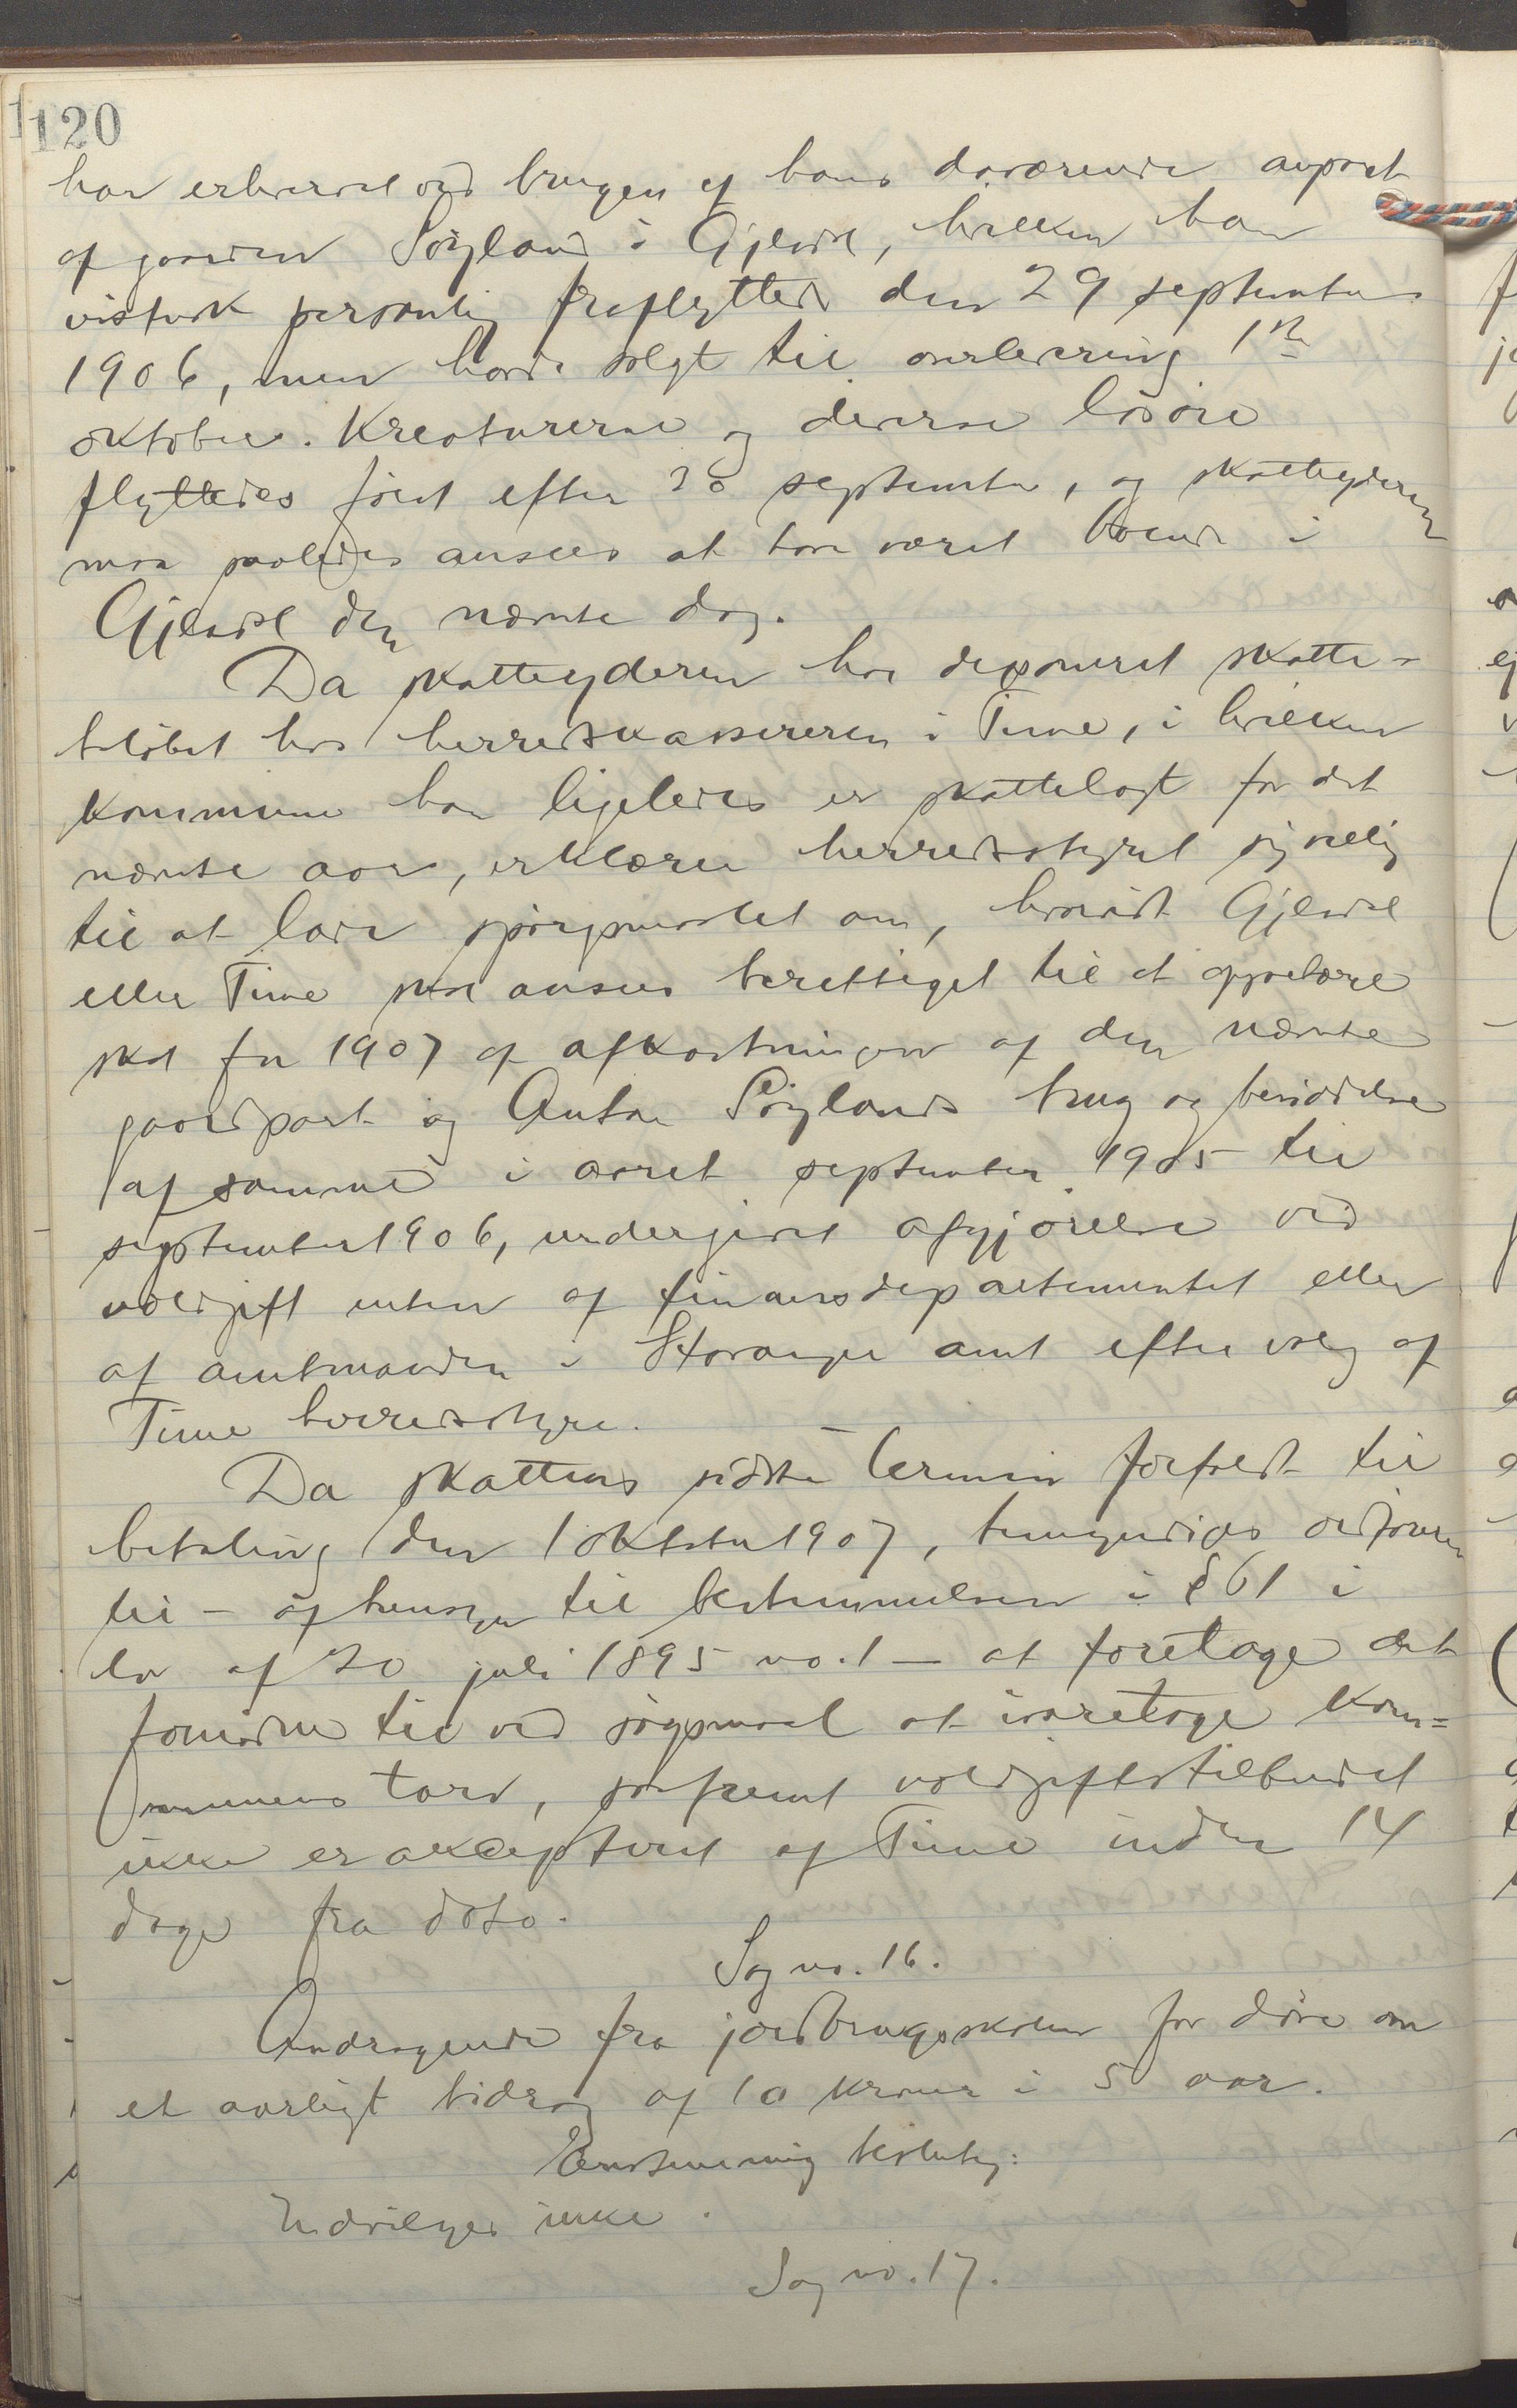 120
har erhvervet ved brugen af hans daværende anpart
af gaarden Söyland i Gjesdal, hvilken han
vistnok personlig fraflyttede den 29 september
1906, men havde solgt til overlevering 1ste
oktober. Kreaturerne og diverse lösöre
flyttedes först efter 30 september, og skatteyderen
maa saaledes ansees at have været boende i
Gjesdal den nævnte dag.
Da skatteyderen har deponeret skatte-
belöbet hos herredskassereren i Time, i hvilken
kommune han ligeledes er skattelagt for det
nævnte aar, erklærer herredsstyret sig villig
til at lade spörgsmaalet om, hvorvidt Gjesdal
eller Time skal ansees berettiget til at oppebære
skat for 1907 af afkastningen af den nævnte
gaardpart og Anton Söylands brug og besiddelse
af samme i aaret september 1905 til
september 1906, undergivet afgjörelse ved
voldgift enten af finansdepartementet eller
af amtmanden i Stavanger amt efter valg af
Time herredsstyre.
Da skattens sidste termin forfaldt til
betaling den 1 oktober 1907, bemyndiges ordföreren
til – af hensyn til bestemmelsen i § 61 i
lov af 20 juli 1895 no. 1 – at foretage det
fornödne til ved sögsmaal at ivaretage kom=
munens tarv, saafremt voldgiftstilbudet
ikke er akcepteret af Time inden 14
dage fra dato.
Sag no. 16.
Andragende fra jordbrugsskolen for döve om
et aarligt bidrag af 10 kroner i 5 aar.
Enstemmig beslutning:
Indvilges ikke.
Sag no. 17.